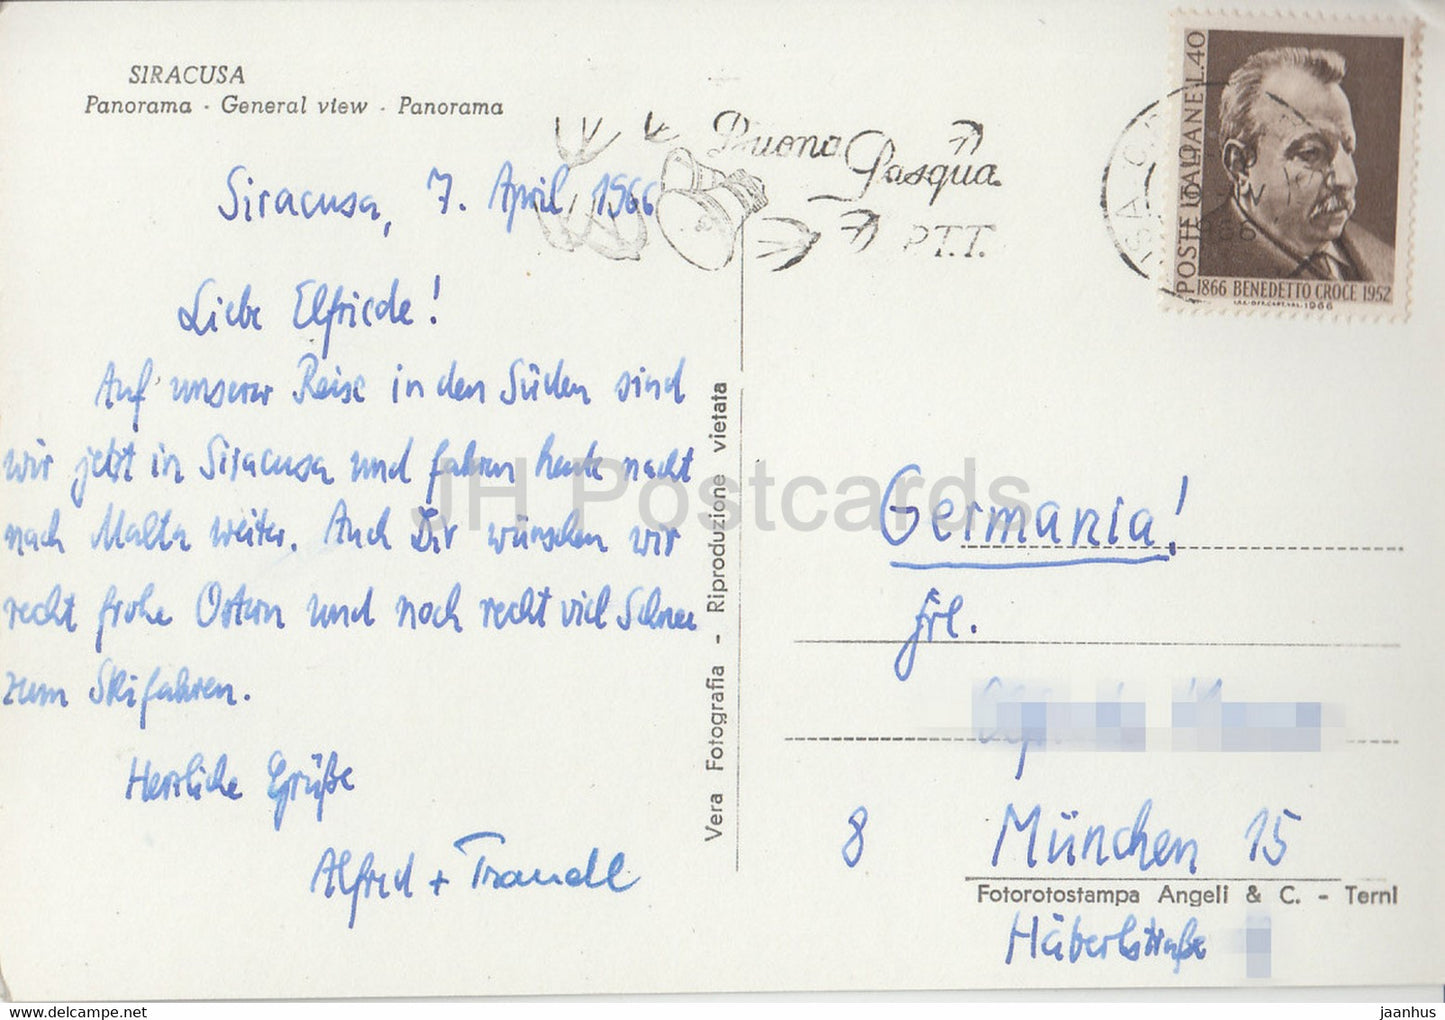 SIRACUSA
Panorama - General view - Panorama
Siracusa, 7. April 1966
Liebe Elfriede!
Auf unserer Reise in den Süden sind
wir jetzt in Siracusa und fahren heute nacht
nach Malta weiter. Auch Dir wünschen wir
recht frohe Ostern und noch recht viel Schnee
zum Skifahren.
Herzliche Grüße
Alfred + Traudl
Vera Fotografia - Riproduzione vietata
Buona Pasqua
P.T.T.
POSTE ITALIANE L.40
1866 BENEDETTO CROCE 1952
1966
Germania!
Frl.
8 München 15
Fotorotostampa Angeli & C. - Terni
Häberlstraße
JH Postcards
www.delcampe.net
jaanhus